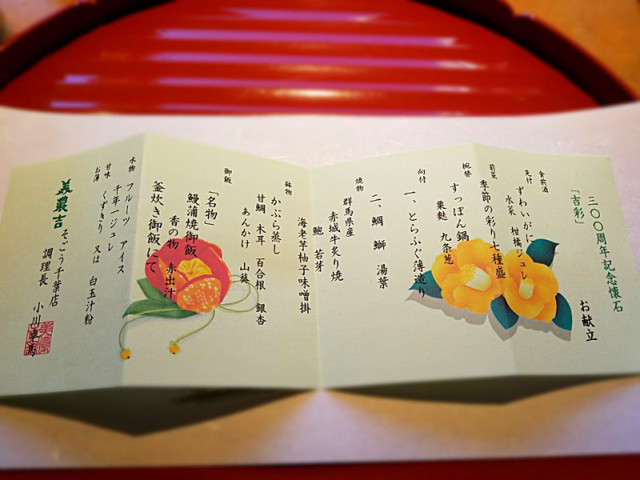 三〇〇周年記念懐石
「吉彩」
お献立
食前酒
先付
ずわいがに
水菜 柑橘ジュレ
前菜
季節の彩り七種盛
椀替
すっぽん鍋
粟麩 九条葱
向付
一、とらふぐ薄造り
二、鯛 鰤 湯葉
焼物
群馬県産
赤城牛炙り焼
鮑 若芽
海老芋柚子味噌掛
鉢物
かぶら蒸し
甘鯛 木耳 百合根 銀杏
あんかけ 山葵
御飯
「名物」
鰻蒲焼御飯
香の物 赤出汁
釜炊き御飯にて
水物
フルーツ アイス
千年一ジュレ
甘味
くずきり 又は 白玉汁粉
お薄
美濃吉 そごう千葉店
調理長 小川